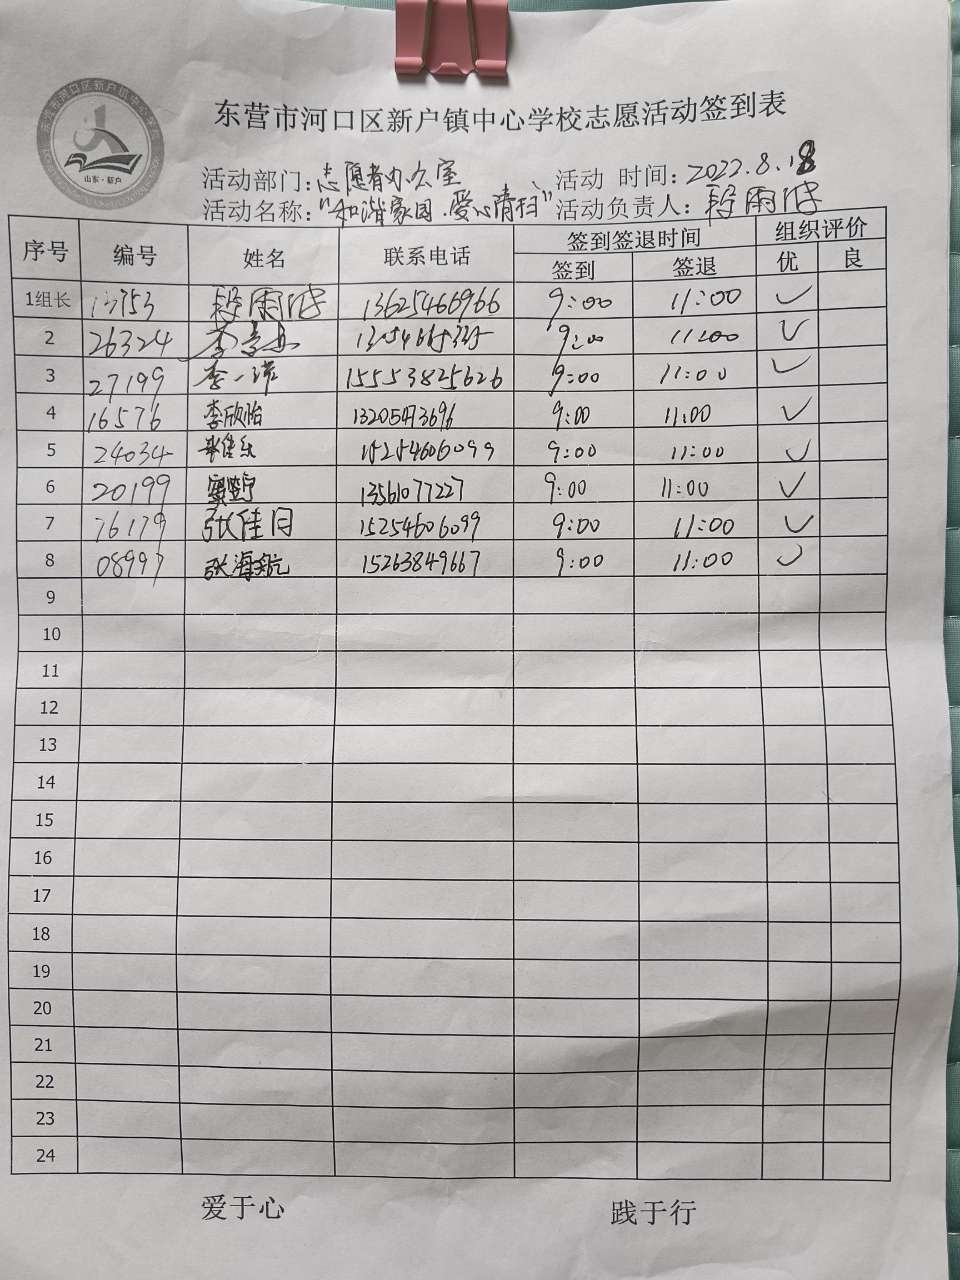 东营市河口区新户镇中心学校志愿活动签到表
山东·新户
活动部门：志愿者办公室 活动 时间：2022.8.18
活动名称："和谐家园.爱心清扫" 活动负责人：段雨
序号 编号 姓名 联系电话 签到签退时间 组织评价
签到 签退 优 良
1组长 13753 段雨 13625466966 9:00 11:00 ✓
2 26324 李 9:00 11:00 ✓
3 27199 李一诺 15553825626 9:00 11:00 ✓
4 16576 李欣怡 13205473696 9:00 11:00 ✓
5 24034 15254606099 9:00 11:00 ✓
6 20199 13561077227 9:00 11:00 ✓
7 76179 张佳同 15254606099 9:00 11:00 ✓
8 08997 张海航 15263849667 9:00 11:00 ✓
9
10
11
12
13
14
15
16
17
18
19
20
21
22
23
24
爱于心 践于行